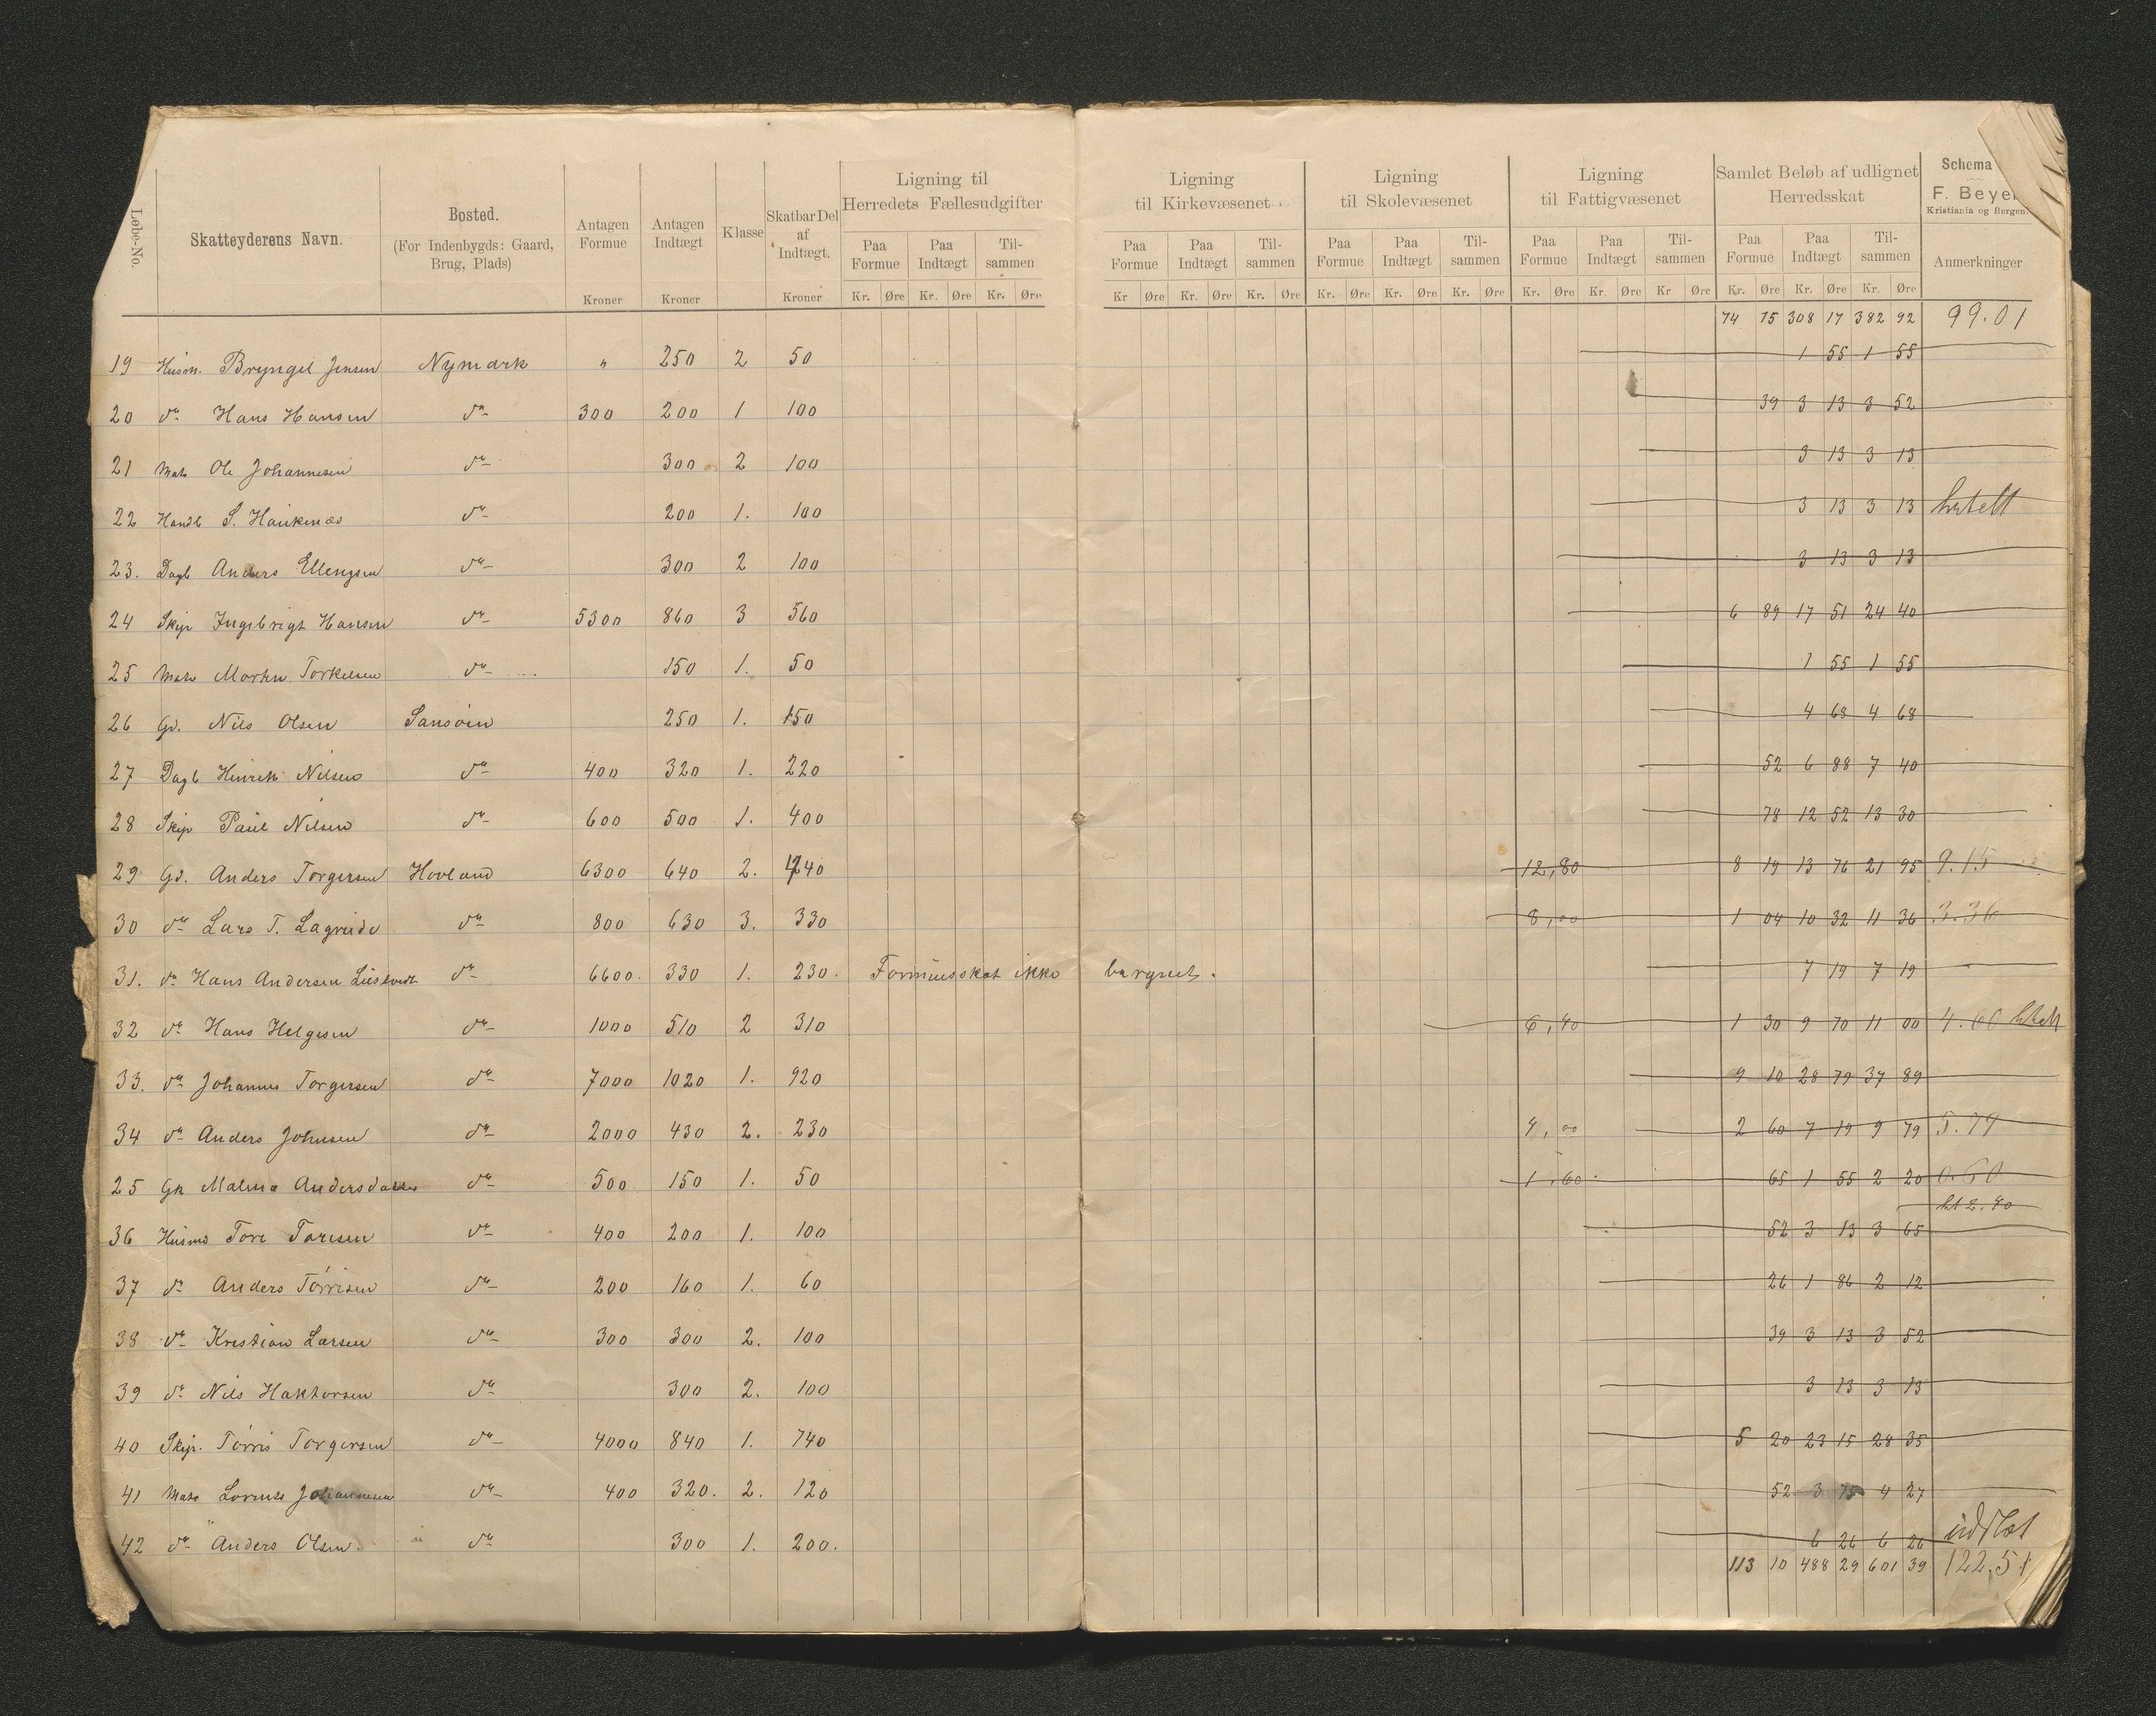 Løbe-No. Skatteyderens Navn. Bosted. (For Indenbygds: Gaard, Brug, Plads) Antagen Formue Kroner Antagen Indtægt Kroner Klasse Skatbar Del af Indtægt. Kroner Ligning til Herredets Fællesudgifter Paa Formue Kr. Øre Paa Indtægt Kr. Øre Tilsammen Kr. Øre Ligning til Kirkevæsenet Paa Formue Kr Øre Paa Indtægt Kr. Øre Tilsammen Kr. Øre Ligning til Skolevæsenet Paa Formue Kr. Øre Paa Indtægt Kr. Øre Tilsammen Kr. Øre Ligning til Fattigvæsenet Paa Formue Kr. Øre Paa Indtægt Kr. Øre Tilsammen Kr Øre Samlet Beløb af udlignet Herredsskat Paa Formue Kr. Øre Paa Indtægt Kr. Øre Tilsammen Kr. Øre Schema F. Beyer Kristiania og Bergen. Anmerkninger
74 75 308 17 382 92 99.01
19 Husm. Bryngel Jensen Nymark " 250 2 50 1 55 1 55
20 do Hans Hansen do 300 200 1 100 39 3 13 3 52
21 Mats Ole Johannesen do 300 2 100 3 13 3 13
22 Handl S. Haukenæs do 200 1. 100 3 13 3 13 betalt
23. Dagl Anders Ellengsen do 300 2 100 3 13 3 13
24 Skip Ingebrigt Hansen do 5300 860 3 560 6 89 17 51 24 40
25 Mats Morten Torkelsen do 150 1. 50 1 55 1 55
26 Gd. Nils Olsen Sansøien 250 1. 150 4 68 4 68
27 Dagl Hinrik Nilsen do 400 320 1. 220 52 6 88 7 40
28 Skip Paul Nilsen do 600 500 1. 400 78 12 52 13 30
29 Gd. Anders Torgersen Hovland 6300 640 2. 440 12,80 8 19 13 76 21 95 9.15
30 do Lars T. Lagreide do 800 630 3. 330 8,00 1 04 10 32 11 36 3.36
31. do Hans Andersen do 6600. 330 1. 230. Formuesskat ikke beregnet. 7 19 7 19
32 do Hans Helgesen do 1000 510 2 310 6,40 1 30 9 70 11 00 4.60 betalt
33. do Johannes Torgersen do 7000 1020 1. 920 9 10 28 79 37 89
34 do Anders Johnsen do 2000 430 2. 230 4,00 2 60 7 19 9 79 5.79
25 Gk Malena Andersdatter do 500 150 1. 50 1,60. 65 1 55 2 20 0.60
36 Husmd Tore Toresen do 400 200 1. 100 52 3 13 3 65
37 do Anders Tørrisen do 200 160 1. 60 26 1 86 2 12
38 do Kristian Larsen do 300 300 2. 100 39 3 13 3 52
39 do Nils Haktorsen do 300 2. 100 3 13 3 13
40 Skip. Tørris Torgersen do 4000 840 1. 740 5 20 23 15 28 35
41 Mats Lorents Johannesen do 400 320. 2. 120 52 3 75 4 27
42 do Anders Olsen. do 300 1. 200. 6 26 6 26 udslet
113 10 488 29 601 39 122,51